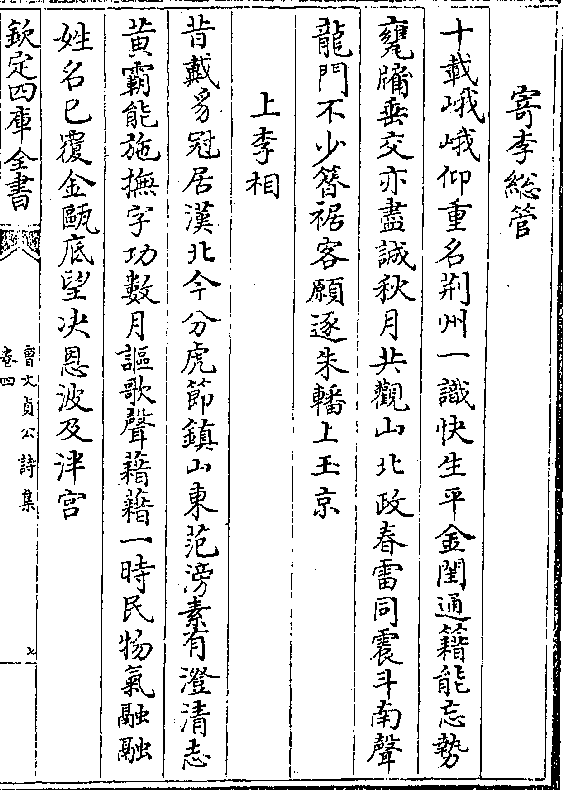 寄李總管
十載峨峨仰重名荆州一識快生平金閨通籍能忘勢
甕牖垂交亦盡誠秋月共觀山北政春雷同震斗南聲
龍門不少簪裾客願逐朱轓上玉京
上李相
昔戴豸冠居漢北今分虎節鎮山東范滂素有澄清志
黄霸能施撫字功數月謳歌聲藉藉一時民物氣融融
姓名已覆金甌底望决恩波及泮宫
欽定四庫全書
曹文貞公詩集
卷四
七